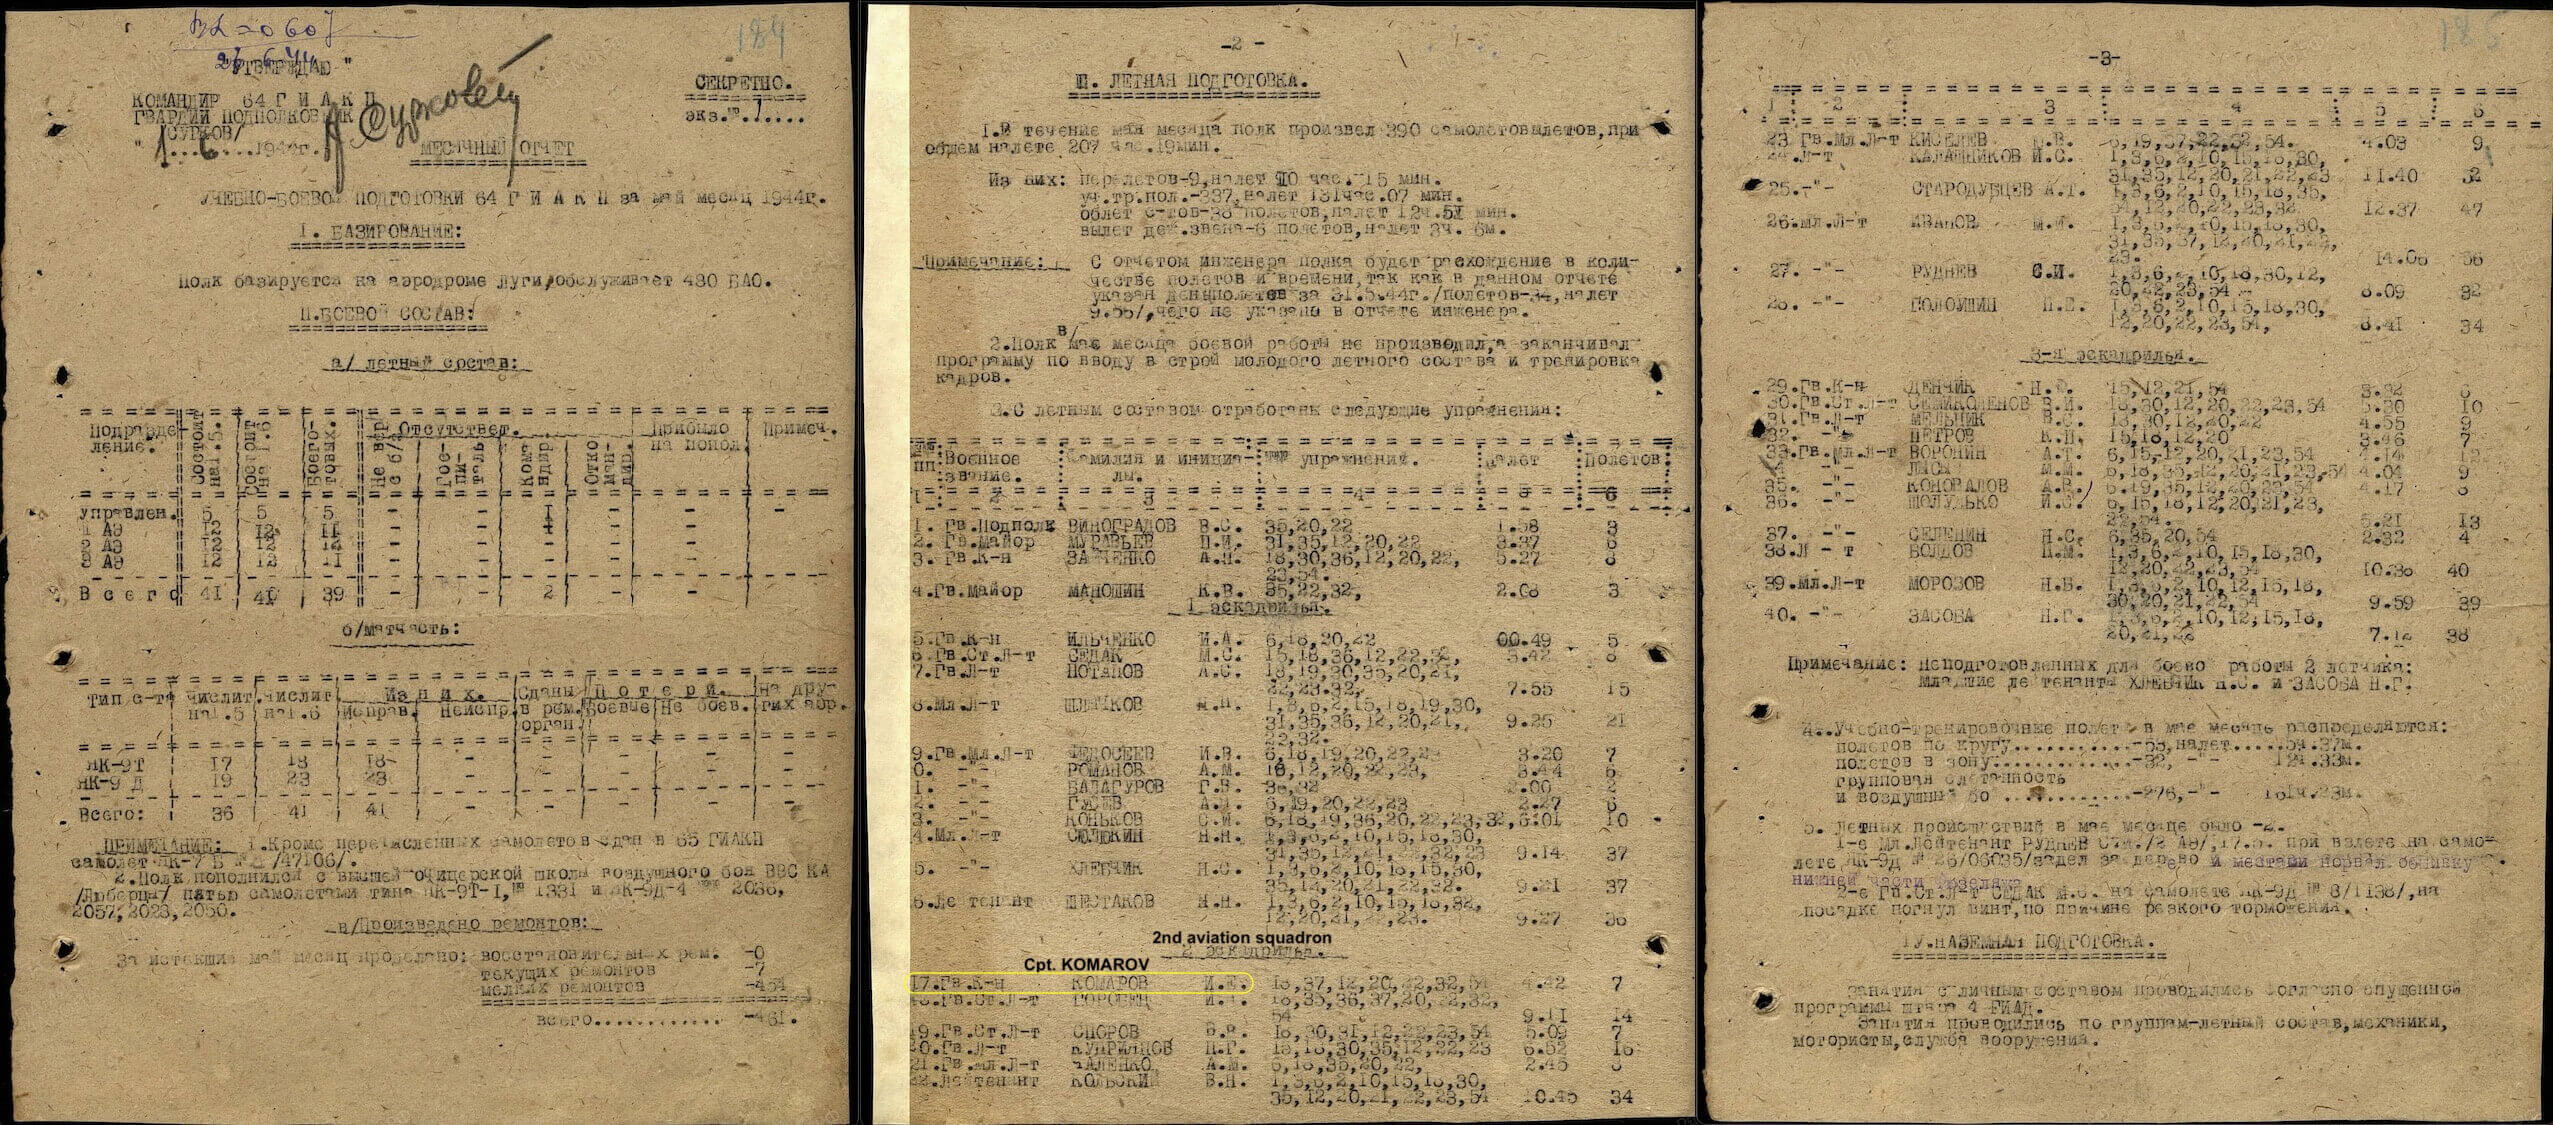 184
"УТВЕРЖДАЮ"
СЕКРЕТНО.
КОМАНДИР 64 Г И А К П
экз.№.1....
ГВАРДИИ ПОДПОЛКОВНИК
/СУРКОВ/
"1...6...1944г.
МЕСЯЧНЫЙ ОТЧЕТ
УЧЕБНО-БОЕВОЙ ПОДГОТОВКИ 64 Г И А К П за май месяц 1944г.
I. БАЗИРОВАНИЕ:
Полк базируется на аэродроме Луги,обслуживает 430 БАО.
П.БОЕВОЙ СОСТАВ:
а/ летный состав:
Подразде- Отсутствет. Прибыло Примеч.
ление. Состоит на1.5. Состоит на 1.6 Боего-товых. Гос-пи-таль Кома ндир. Отко ман-дир. на попол.
управлен. 5 5 5 - - 1 - - -
1 АЭ 12 12 11 - - 1 - - -
2 АЭ 12 12 12 - - - - - -
3 АЭ 12 12 11 - - - - - -
В с е г о 41 39 - - 2 - - -
б/матчасть:
Тип с-та числит. числит Из н и х. Сданы П о т е р и. На дру-
на1.5 на1.6 Исправ. Неиспр. в рем. Боевые Не боев. гих аэр.
орган.
ЯК-9Т 17 18 18 - - - - -
ЯК-9 Д 19 23 23 - - - - -
Всего: 36 41 41 - - - - -
ПРИМЕЧАНИЕ: 1.Кроме перечисленных самолетов сдан в 65 ГИАКП
самолет ЯК-7 Б № /47106/.
2.Полк пополнился с высшей офицерской школы воздушного боя ВВС КА
/Люберцы/ пятью самолетами типа ЯК-9Т-1,№ 1331 и ЯК-9Д-4 №№ 2036,
2057,2023,2050.
в/Произведено ремонтов:
За истекший май месяц проделано: восстановительных рем. -0
текущих ремонтов -7
мелких ремонтов -454
всего............ -461.
-2 -
Ш. ЛЕТНАЯ ПОДГОТОВКА.
1.В течение мая месяца полк произвел 390 самолетовылетов,при
общем налете 207 час.19мин.
Из них: перелетов-9,налет 10 час. 15 мин.
уч.тр.пол.-337,налет 181час.07 мин.
облет с-тов-38 полетов,налет 12ч.51 мин.
вылет деж.звена-6 полетов,налет 3ч. 6м.
Примечание: С отчетом инженера полка будет расхождение в коли-
честве полетов и времени,так как в данном отчете
указан день полетов за 31.5.44г./полетов-34,налет
9.55/,чего не указано в отчете инженера.
в/
2.Полк мае месяца боевой работы не производил,а заканчивал
программу по вводу в строй молодого летного состава и тренировка
кадров.
3.С летным составом отработаны следующие упражнения:
№№ пп Военное звание. Фамилия и инициа-лы. №№ упражнений. Налет Полетов.
1 2 3 4 5 6
1. Гв.Подполк ВИНОГРАДОВ В.С. 35,20,22 1.58 3
2. Гв.майор МУРАВЬЕВ П.И. 31,35,12,20,22 3.37 6
3. Гв.К-н ЗАЙЧЕНКО А.Н. 18,30,36,12,20,22, 5.27 8
23,54.
4.Гв.майор МАНОШИН К.В. 35,22,32, 2.08 3
1 эскадрилья.
5.Гв.К-н ИЛЬЧЕНКО И.А. 6,18,20,22 00.49 5
6.Гв.Ст.Л-т СЕДАК М.С. 15,18,36,12,22,32, 5.42 8
7.Гв.Л-т ПОТАПОВ А.С. 18,19,20,35,20,21,
22,23.32, 7.55 15
8.Мл.Л-т ШЛЯПКОВ 1,3,6,2,15,18,19,30,
31,35,36,12,20,21, 9.25 21
22,32.
9.Гв.Мл.Л-т ФЕДОСЕЕВ И.В. 6,18,19,20,22,23 3.20 7
0. -"- РОМАНОВ А.М. 18,12,20,22,23, 3.44 6
1. -"- БАЛАГУРОВ Г.В. 36,32 2.00 2
2. -"- ГУСЕВ А.И. 6,19,20,22,23 2.27 6
3. -"- КОНЬКОВ С.И. 6,18,19,36,20,22,23,32,6.01 10
4.Мл.Л-т СЮЛЮКИН Н.Н. 1,3,6,2,10,15,18,30,
31,35,12,21,22,32,23 9.14 37
5. -"- ХЛЕБЧИК Н.С. 1,3,6,2,10,18,15,30,
35,14,20,21,22,32. 9.21 37
6.Лейтенант ШЕСТАКОВ Н.Н. 1,3,6,2,10,15,18,32,
12,20,21,22,23. 9.27 36
2nd aviation squadron
2 эскадрилья.
Cpt. KOMAROV
17.Гв.К-н КОМАРОВ И.Е. 18,37,12,20,22,32,54 4.42 7
18.Гв.Ст.Л-т ГОРОБЕЦ И.И. 18,35,36,37,20,22,32,
54 9.11 14
19.Гв.Ст.Л-т СПОРОВ 18,30,31,12,22,23,54 5.09 7
20.Гв.Л-т КУПРИЯНОВ П.Г. 15,18,30,35,12,22,23 6.52 16
21.Гв.мл.Л-т ЧАЛЕНКО А.М. 6,18,35,20,22, 2.45
22.Лейтенант КОЛЬСКИЙ В.Н. 1,3,6,2,10,15,18,30,
35,12,20,21,22,23,54 10.45 34
185
-3-
1 2 3 4 5 6
23.Гв.Мл.Л-т КИСЕЛЕВ 6,19,37,22,32,54. 4.03 9
24.Л-т КАЛАШНИКОВ И.С. 1,3,6,2,10,15,18,30,
31,35,12,20,21,22,23 11.40 32
25.-"- СТАРОДУБЦЕВ А.Т. 1,3,6,2,10,15,18,35,
54,12,20,22,23,32 12.37 47
26.мл.Л-т ИВАНОВ М.И. 1,3,6,2,10,15,18,30,
31,35,37,12,20,21,22,
23. 14.08 56
27. -"- РУДНЕВ С.И. 1,3,6,2,10,18,30,12,
20,22,23,54 8.09 32
28. -"- ПОЛОШИН П.Е. 1,3,6,2,10,15,18,30,
12,20,22,23,54, 8.41 34
3-я эскадрилья.
29.Гв.К-н ДЕНЧИК Н.Ф. 15,12,21,54 3.32 6
30.Гв.Ст.Л-т СЕМИКОЛЕНОВ В.И. 18,30,12,20,22,23,54 5.30 10
31.Гв.Л-т МЕЛЬНИК В.С. 18,30,12,20,22 4.55 9
32. -"- ПЕТРОВ К.Н. 15,18,12,20 3.46 7
33.Гв.Мл.Л-т ВОРОНИН А.Т. 6,15,12,20,21,23,54 4.14 12
-"- ЛИСЫ М.М. 6,18,35,12,20,21,23,54 4.04 9
35. -"- КОНОВАЛОВ А.В. 6,19,35,12,20,23,54 4.17 8
36. -"- ШОЛУДЬКО И.С. 6,15,18,12,20,21,23,
22,54. 5.21 13
37. -"- СЕЛЕНИН Н.С. 6,35,20,54 2.32 4
38.Л - т ВОЛДОВ П.М. 1,3,6,2,10,15,18,30,
12,20,22,23,54 10.38 40
39.Мл.Л-т МОРОЗОВ Н.Б. 1,3,6,2,10,12,15,18,
30,20,21,22,54 9.59 39
40. -"- ЗАСОВА Н.Г. 1,3,6,2,10,12,15,18,
20,21,23 7.12 38
Примечание: Неподготовленных для боевой работы 2 летчика:
младшие лейтенанты ХЛЕБЧИК Н.С. и ЗАСОВА Н.Г.
4..Учебно-тренировочные полеты в мае месяце распределяются:
полетов по кругу............-53,налет.....5ч.37м.
полетов в зону..............-32, -"- 12ч.33м.
групповая слетанность
и воздушный бой .............-276,-"- 161ч.23м.
5. Летных происшествий в мае месяце было -2.
1-е Мл.Лейтенант РУДНЕВ С.И./2 АЭ/,17.5. при взлете на само-
лете ЯК-9д № 26/06035/задел за дерево и местами порвал обшивку
нижней части фюзеляжа.
2-е Гв.Ст.Л-т СЕДАК М.С. на самолете ЯК-9Д № 8/1138/,на
посадке погнул винт,по причине резкого торможения.
IУ.НАЗЕМНАЯ ПОДГОТОВКА.
Занятия с личным составом проводились согласно спущенной
программы штаба 4 ГИАД.
Занятия проводились по группам-летный состав,механики,
мотористы,служба вооружения.